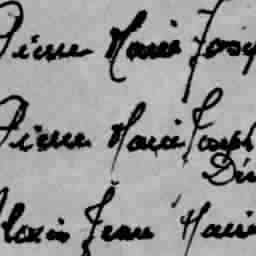 Pierre Marie Josep
Pierre Marie Joseph
Alexis Jean Marie